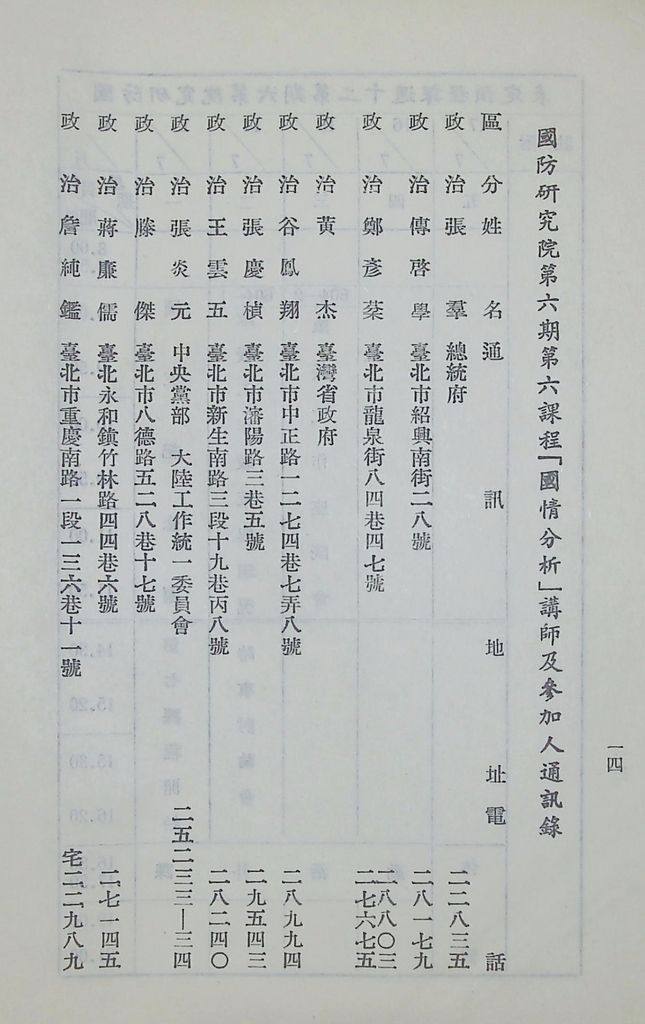 國防研究院第六期第六課程「國情分析」講師及參加人通訊錄
區分姓名通訊地址電話
政治張羣總統府二二八三五
政治傅啓學臺北市紹興南街二八號二八一七九
政治鄭彥棻臺北市龍泉街八四巷四七號二八八〇三
二七六七五
政治黃杰臺灣省政府
政治谷鳳翔臺北市中正路一二七四巷七弄八號二八九九四
政治張慶楨臺北市瀋陽路三巷五號二九五四三
政治王雲五臺北市新生南路三段十九巷丙八號二八二四〇
政治張炎元中央黨部 大陸工作統一委員會二五二三三—三四
政治滕傑臺北市八德路五二八巷十七號
政治蔣廉儒臺北永和鎮竹林路四四巷六號二七一四五
政治詹純鑑臺北市重慶南路一段一三六巷十一號宅二二九八九
一四